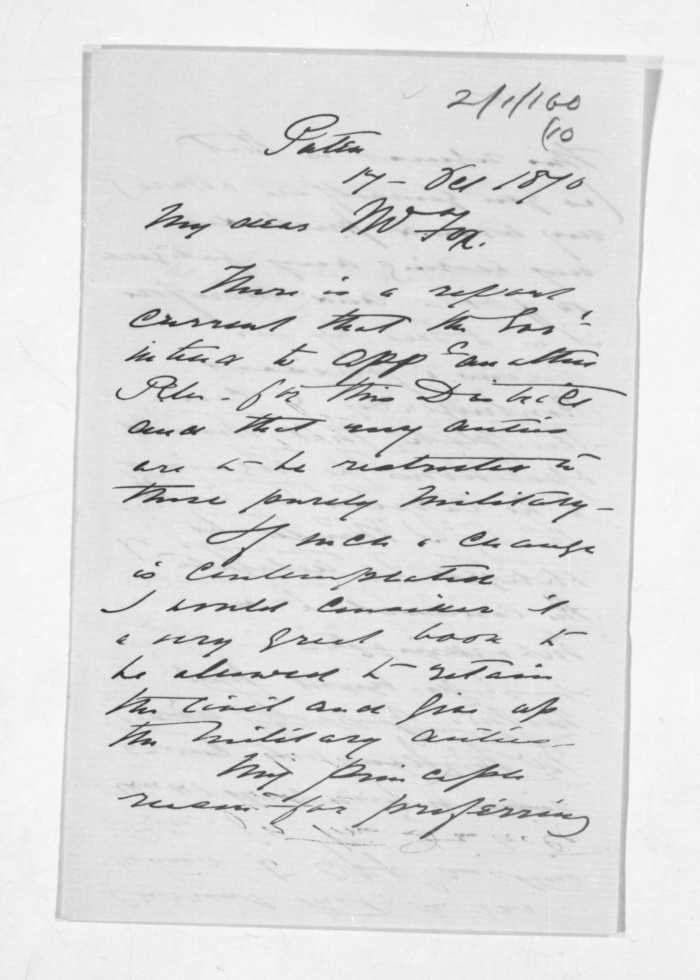 2/1/160
/10
Patea
17 - Oct 1870
My dear Mr Fox.
There is a report
current that the Govt.
intend to appt another
R.M. for this District
and that my duties
are to be restricted to
those purely Military -
If such a change
is contemplated
I would consider it
a very great boon to
be allowed to retain
the Civil and give up
the Military duties -
My principle
reason for preferring